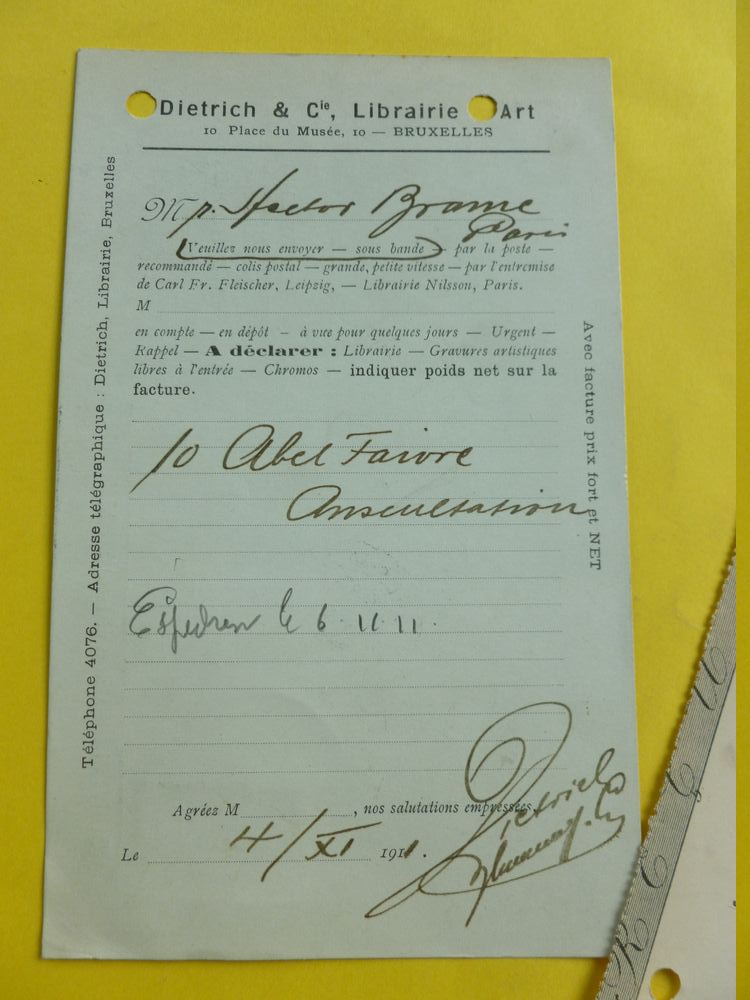 Dietrich & Cie, Librairie Art
10 Place du Musée, 10 — BRUXELLES
M r. Hector Brame
Paris
Veuillez nous envoyer — sous bande — par la poste —
recommandé — colis postal — grande, petite vitesse — par l'entremise
de Carl Fr. Fleischer, Leipzig, — Librairie Nilsson, Paris.
M
en compte — en dépôt — à vue pour quelques jours — Urgent —
Rappel — A déclarer : Librairie — Gravures artistiques
libres à l'entrée — Chromos — indiquer poids net sur la
facture.
10 Abel Faivre
Auscultation
le 6. 11. 11.
Agréez M , nos salutations empressées.
Dietrich
Le 4/XI 1911.
Téléphone 4076. — Adresse télégraphique : Dietrich, Librairie, Bruxelles
Avec facture prix fort et NET